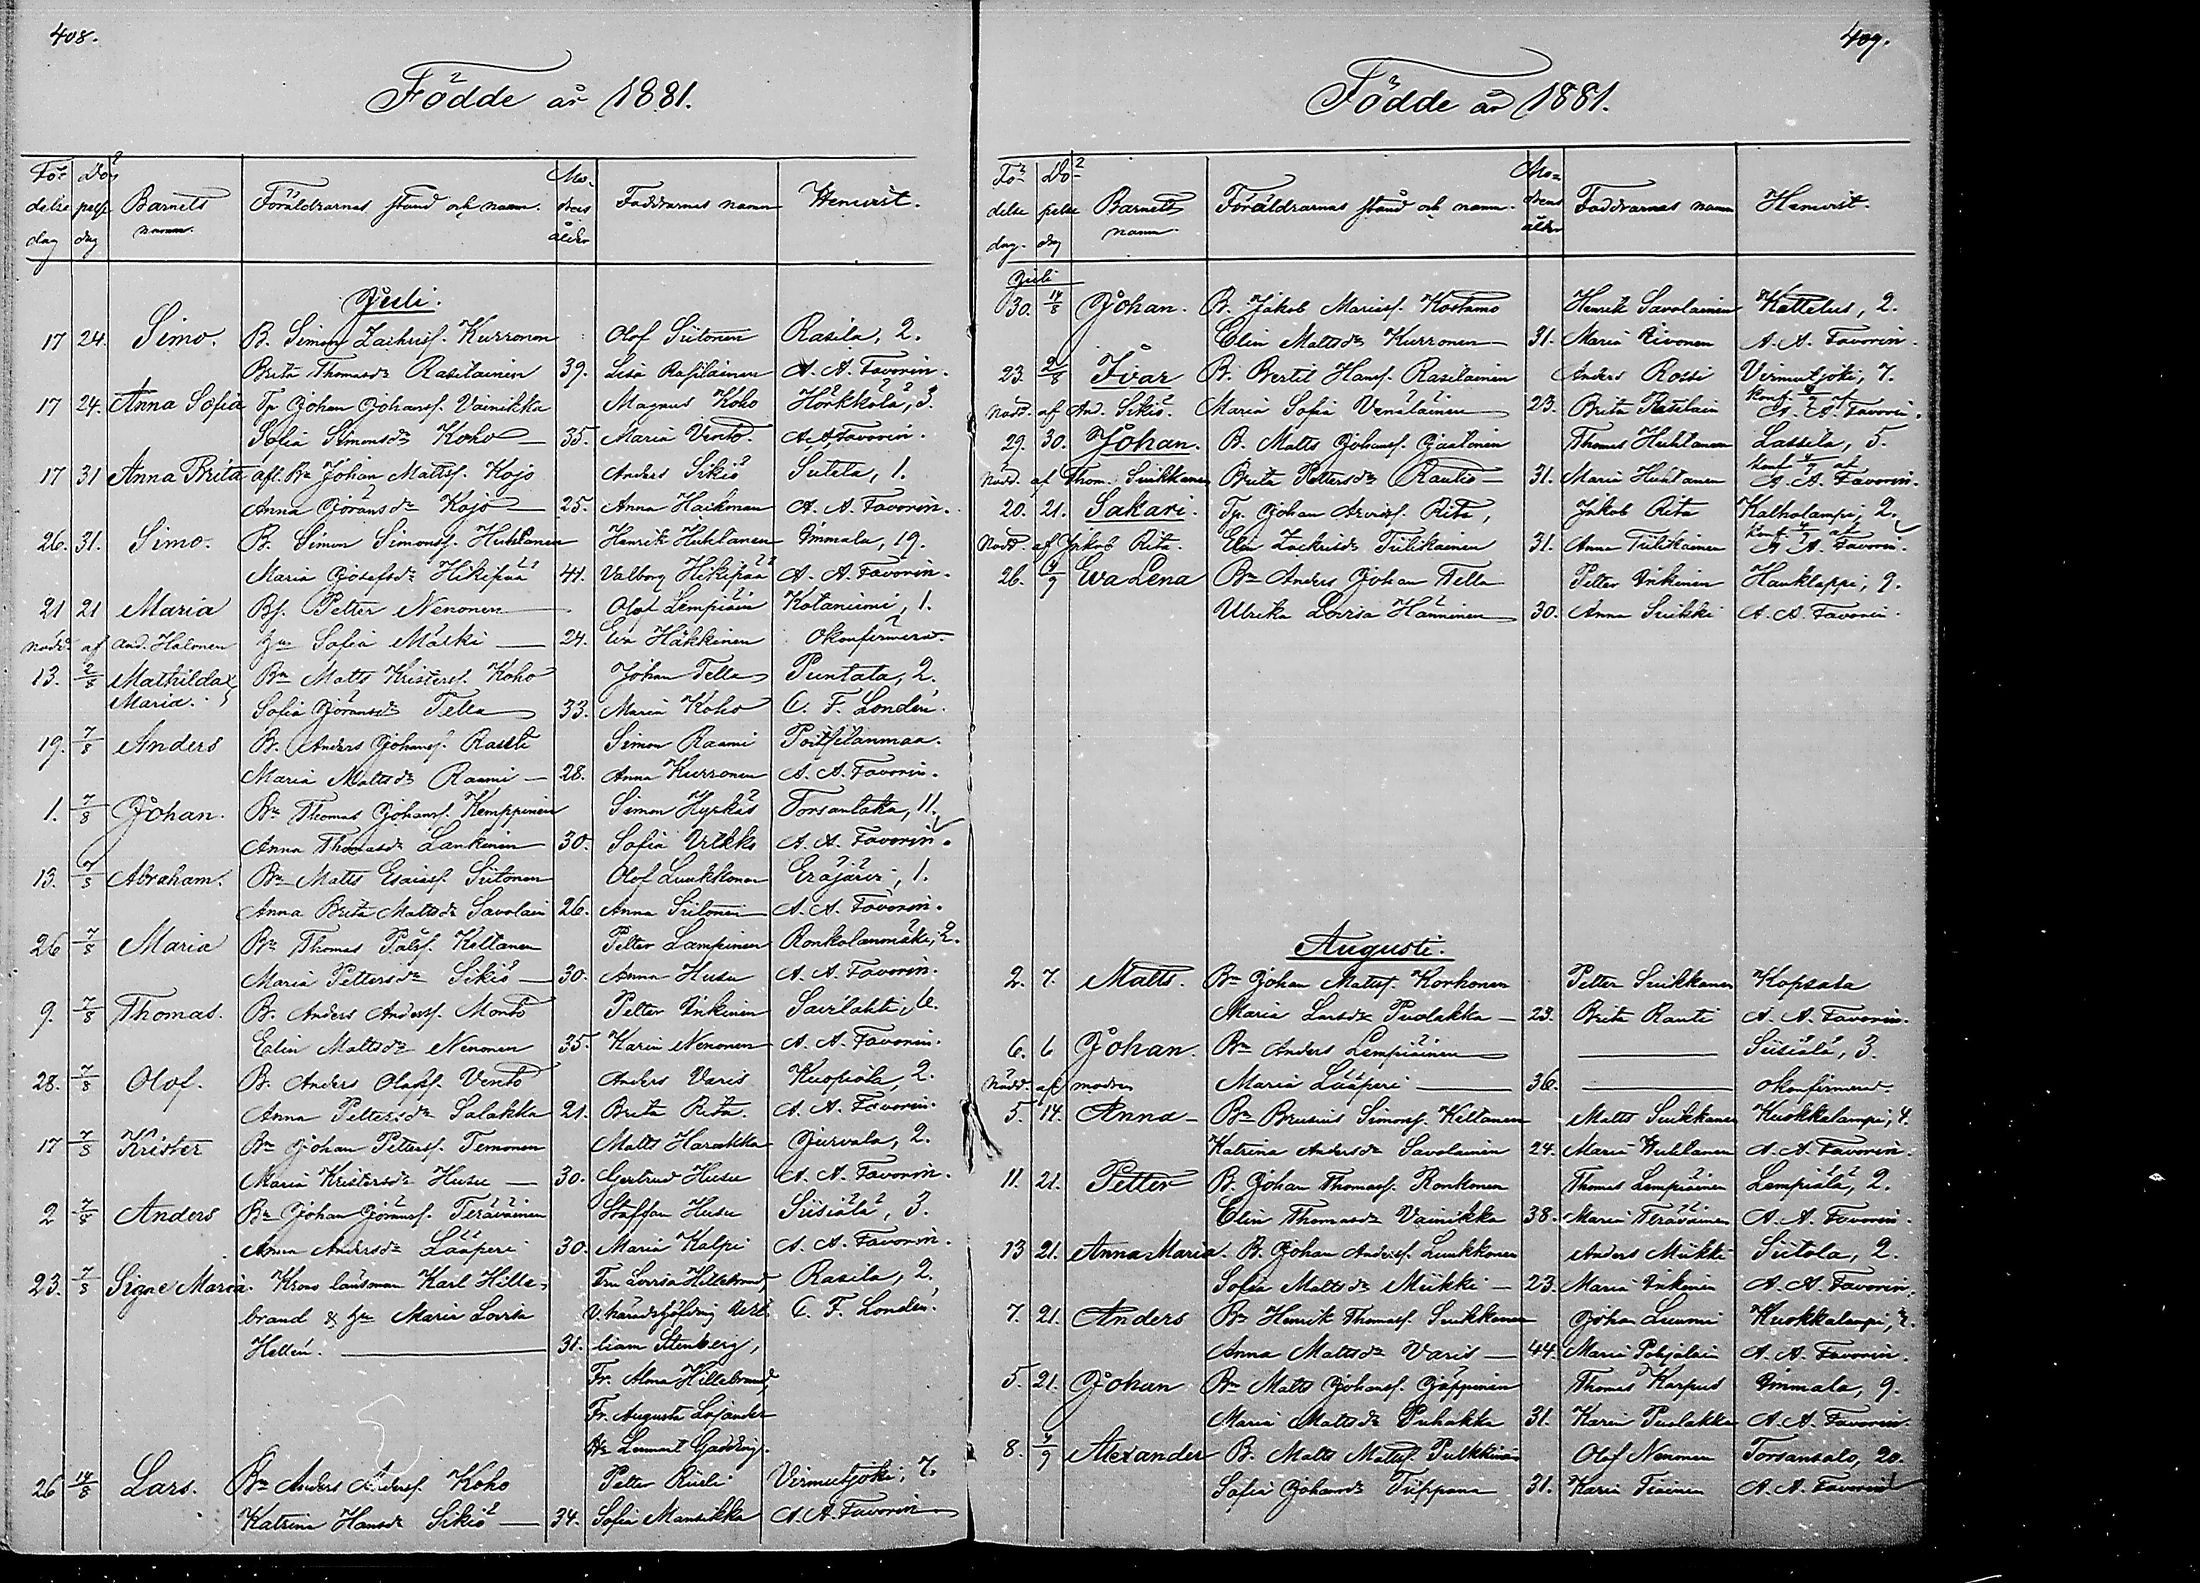 408.
Födde år 1881.
Fö- Dö- Mo-
delse pelse Barnets Föräldrarnas stånd och namn. drens Faddrarnes namn Hemvist.
dag dag namn. ålder
Juli.
17 24. Simo. B. Simon Zachrisf. Kurronen Olof Siitonen Rasila, 2.
Brita Thomasdr Rasilainen 39. Lisa Rasilainen A. A. Favorin.
17 24. Anna Sofia Tp Johan Johansf. Vainikka Magnus Koho Hörkkölä, 3.
Sofia Simonsdr Koho 35. Maria Vento. A. A. Favorin.
17 31 Anna Brita afl. Bn Johan Mattsf. Kojo Anders Sikiö Sutela, 1.
Anna Göransdr Kojo 25. Anna Haikonen A. A. Favorin.
26. 31. Simo. B. Simon Simonsf. Huhtanen Henrik Huhtanen Immala, 19.
Maria Josefsdr Hikipää 41. Valborg Hikipää A. A. Favorin.
21 21 Maria Bf. Petter Nenonen Olof Lempiäin Kotaniemi, 1.
Nödd. af And. Halonen Hu Sofia Mälki 24. Eva Häkkinen Okonfirmerad.
13. 2/8 Mathilda Bn Matts Kristersf. Koho Johan Tella Puntala, 2.
Maria. Sofia Göransdr Tella 33. Maria Koho C. F. Londén.
19. 7/8 Anders B. Anders Johansf. Rasti Simon Raami Poitsilanmaa.
Maria Mattsdr Raami 28. Anna Kurronen A. A. Favorin.
1. 7/8 Johan. Bn Thomas Johansf. Kemppinen Simon Hyrkäs Torsantaka, 11.
Anna Thomasdr Lankinen 30. Sofia Ukkko A. A. Favorin.
13. 7/8 Abraham. Bn Matts Esaiasf. Siitonen Olof Luukkonen Eräjärvi, 1.
Anna Brita Mattsdr Savolain 26. Anna Siitonen A. A. Favorin.
26 7/8 Maria Bn Thomas Pålsf. Keltanen Petter Lampinen Ronkolanmäki, 2.
Maria Pettersdr Sikiö 30. Anna Husu A. A. Favorin.
9. 7/8 Thomas. B. Anders Andersf. Monto Petter Inkinen Savilahti, 6.
Elin Mattsdr Nenonen 35. Karin Nenonen A. A. Favorin.
28. 7/8 Olof. B. Anders Olofsf. Vento Anders Varis Kuopiola, 2.
Anna Pettersdr Salakka 21. Brita Rita. A. A. Favorin.
17 7/8 Krister Bn Johan Pettersf. Temonen Matts Harakka Jurvala, 2.
Maria Kristersdr Husu 30. Gertrud Husu A. A. Favorin.
2 7/8 Anders Bn Johan Göransf. Teräväinen Staffan Husu Siisiälä, 3.
Anna Andersdr Lääperi 30. Maria Kalpi A. A. Favorin.
23. 7/8 Signe Maria. Krono länsman Karl Hille- Fru Lovisa Hillebrand, Rasila, 2.
brand & Hu Maria Lovisa V. häradshöfding Wil- C. F. Londén.
Hellén. 31. liam Stenberg,
Fr. Alma Hillebrand,
Fr. Augusta Lojander
Hr Lennart Gadding.
26 14/8 Lars. Bn Anders Andersf. Koho Petter Rusli Virmutjoki, 7.
Katrina Hansdr Sikiö 34. Sofia Mansikka A. A. Favorin
409.
Födde år 1881.
Fö- Dö- Mo-
delse pelse Barnets Föräldrarnas stånd och namn. drens Faddrarnas namn Hemvist.
dag. dag namn. ålder
Juli
30. 14/8 Johan. B. Jakob Mariasf. Kostamo Henrik Savolainen Kattelus, 2.
Elin Mattsdr Kurronen 31. Maria Rivonen A. A. Favorin.
23. 2/8 Ivar B. Bertil Hansf. Rasilainen Anders Rossi Virmutjoki, 7.
Nödd. af And. Sikiö. Maria Sofia Venäläinen 23. Brita Rasilain konf. af A. A. Favorin.
29. 30. Johan. B. Matts Johansf. Jantonen Thomas Huhtanen Lassila, 5.
Nödd. af Thom. Suikkanen Brita Pettersdr Rautio 31. Maria Huhtanen konf. 4/9 af A. A. Favorin.
20. 21. Sakari. Tp. Johan Arvidsf. Rita, Jakob Rita Kalholampi, 2.
Nödd. af Jakob Rita. Elin Zachrisdr Tiilikainen 31. Anna Tiilikainen konf. 4/9 af A. A. Favorin.
26. 4/9 Eva Lena Bn Anders Johan Tella Petter Inkinen Hauklappi, 9.
Ulrika Lovisa Hänninen 30. Anna Suikki A. A. Favorin.
Augusti.
2. 7. Matts. Bn Johan Mattsf. Korhonen Petter Suikkanen Kopsala
Maria Larsdr Puolakka 23. Brita Rauti A. A. Favorin.
6. 6 Johan. Bn Anders Lempiäinen Siisiälä, 3.
Nödd. af modren Maria Lääperi 36. Okonfirmerad.
5. 14. Anna Bn Brusius Simonsf. Keltanen Matts Suikkanen Kuokkalampi, 4.
Katrina Andersdr Savolainen 24. Maria Huhtanen A. A. Favorin.
11. 21. Petter B. Johan Thomasf. Ronkonen Thomas Lempiäinen Lempiälä, 2.
Elin Thomasdr Vainikka 38. Maria Teräväinen A. A. Favorin.
13 21. Anna Maria. B. Johan Andersf. Luukkonen Anders Miikki Siitola, 2.
Sofia Mattsdr Miikki 23. Maria Inkinen A. A. Favorin.
7. 21. Anders Bn Henrik Thomasf. Suikkanen Johan Luumi Kuokkalampi, 2.
Anna Mattsdr Varis 44. Maria Pohjalain A. A. Favorin.
5. 21. Johan Bn Matts Johansf. Jäppinen Thomas Karpus Immala, 9.
Maria Mattsdr Puhakka 31. Karin Puolakka A. A. Favorin.
8. 4/9 Alexander B. Matts Mattsf. Pulkkinen Olof Nenonen Torsansalo, 20.
Sofia Johansdr Tiippana 31. Karin Tiainen A. A. Favorin